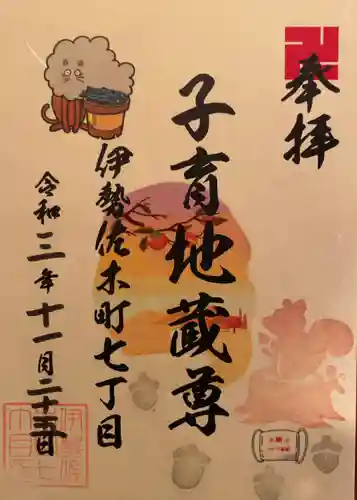 奉拝
子育地蔵尊
伊勢佐木町七丁目
令和三年十一月二十五日